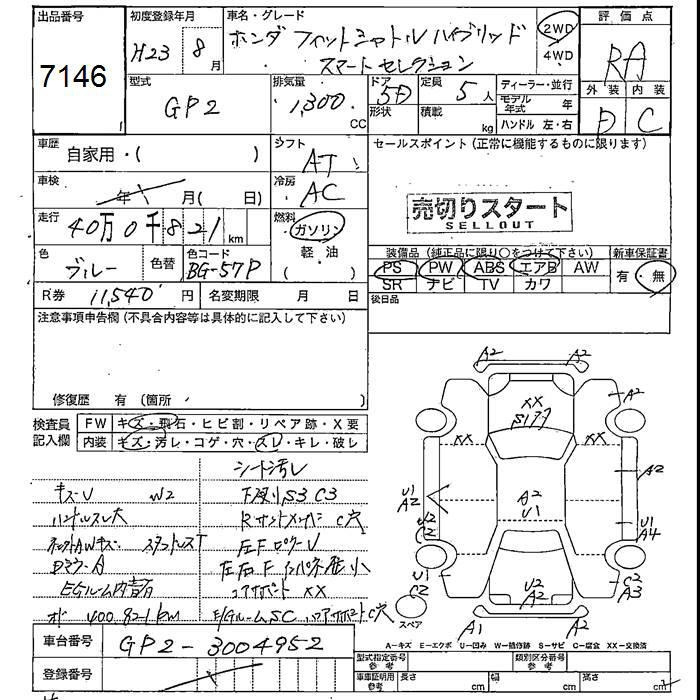 出品番号
7146
初度登録年月
H23 8月
車名・グレード
ホンダ フィットシャトル ハイブリッド
スマートセレクション
2WD
4WD
評価点
RA
外装 内装
D C
型式
GP2
排気量
1,300 CC
ドア
形状
5D
定員
5人
積載 kg
ディーラー・並行
モデル年式 年
ハンドル 左・右
車歴
自家用・( )
シフト
AT
セールスポイント(正常に機能するものに限ります)
車検
年 月( 日)
冷房
AC
売切りスタート
SELLOUT
走行
40万0千821km
燃料
ガソリン
軽・油
色
ブルー
色替
色コード
BG-57P
( )
装備品(純正品に限り○をつけて下さい)
新車保証書
PS PW ABS エアB AW
SR ナビ TV カワ
有・無
R券 11,540円
名変期限 月 日
後日品
注意事項申告欄(不具合内容等は具体的に記入して下さい)
修復歴 有(箇所 )
検査員
記入欄
FW キズ・飛石・ヒビ割・リペア跡・X要
内装 キズ・汚レ・コゲ・穴・スレ・キレ・破レ
シート汚レ
キズU W2
下廻りS3 C3
ハンドルスレ大
コアサポート XX
EGルーム内
400821km
E/GルームSC コアサポートC穴
A2 A2
A2
XX
XX XX
A2
U1
A2
A2
U1
U1
A4
U2
C2
U1
C2
C2
A3
U2
A2
A1 A2
スペア
A-キズ E-エクボ U-凹み W-補修跡 S-サビ C-腐食 XX-交換済
車台番号
GP2-3004952
登録番号
型式指定番号
参考
類別区分番号
参考
車庫証明用
参考
長さ cm 幅 cm 高さ cm